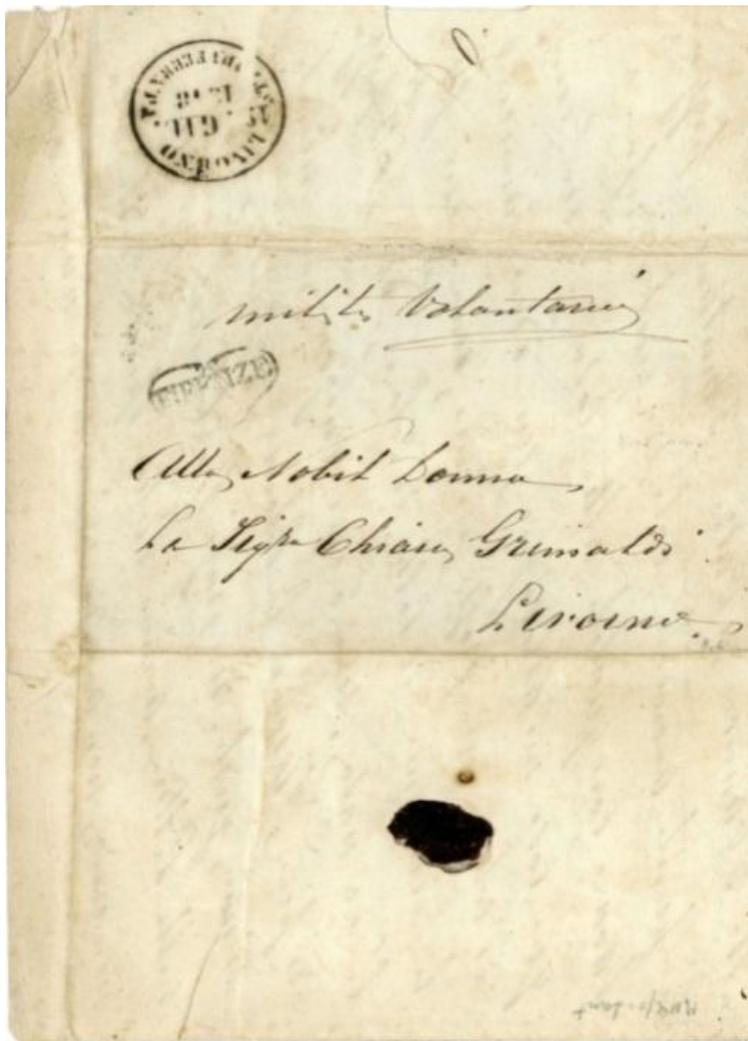 LIVORNO
GIU.
milite Volontario
FIRENZE
Alla Nobil Donna
La Sigra Chiara Grimaldi
Livorno